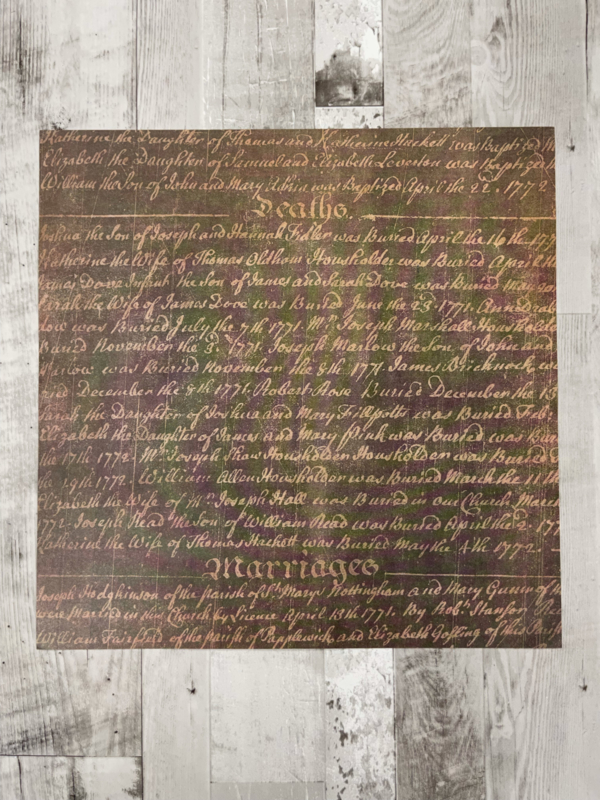 Katherine the Daughter of Thomas and Katherine Hackett was Baptized
Elizabeth the Daughter of Samuel and Elizabeth Leverton was Baptized
William the Son of John and Mary was Baptized April the 22d. 1772.
Deaths.
Joshua the Son of Joseph and Hannah Fidler was Buried April the 16th 177
Katherine the Wife of Thomas Oldham Housholder was Buried April th
James Dove Infant the Son of James and Sarah Dove was Buried
Sarah the Wife of James Dove was Buried June the 23. 1771.
dow was Buried July the 7th 1771. Mr. Joseph Marshall Housholde
Buried November the 3. 1771. Joseph Marlow the Son of John and
Marlow was Buried November the 8th 1771. James Bricknock w
ried December the 8th 1771. Robert Rose Buried December the 13
Sarah the Daughter of Joshua and Mary Fillpotts was Buried Feb:
Elizabeth the Daughter of James and Mary Pink was Buried was Bur
the 17th 1772. Mr. Joseph Shaw Housholder Housholder was Buried
the 19th 1772. William Allen Housholder was Buried March the 11th
Elizabeth the Wife of Mr. Joseph Hall was Buried in our Church March
1772. Joseph Read the Son of William Read was Buried April the 2. 177
Katherine the Wife of Thomas Hackett was Buried May the 4th 1772.
Marriages
Joseph Hodgkinson of the parish of St. Marys Nottingham and Mary Gunn of
were Married in this Church by Licence April 13th 1771. By Rob: Stanser
William Fairfield of the parish of Papplewick and Elizabeth Gosling of this Parish